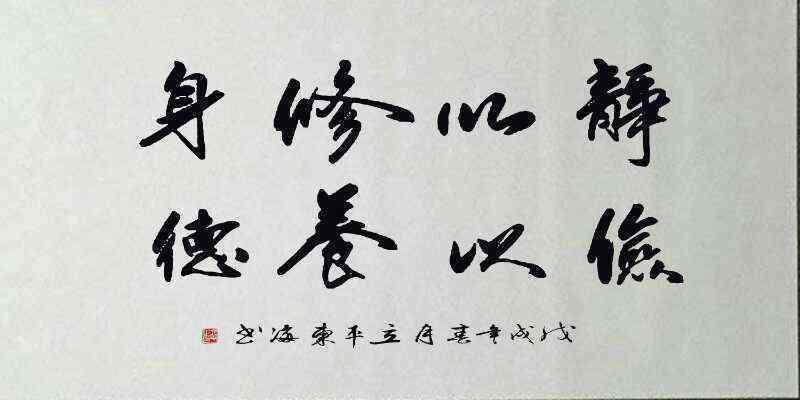 靜以修身
儉以養德
戊戌年月立平東书